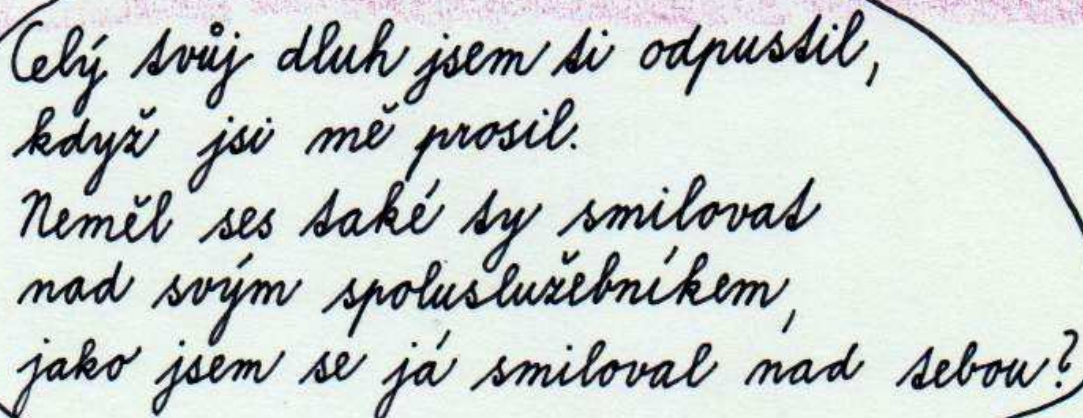 Celý tvůj dluh jsem ti odpustil,
když jsi mě prosil.
Neměl ses také ty smilovat
nad svým spoluslužebníkem,
jako jsem se já smiloval nad tebou?